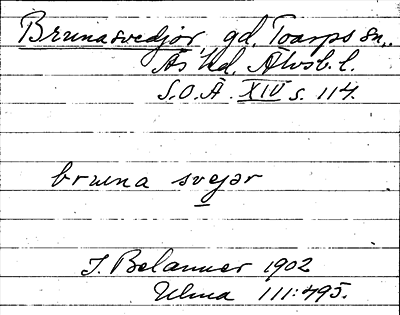 Brunasvedjor, gd, Toarps sn.,
Ås hd. Älvsb. l.
S.O.Ä. XIV s. 114.
bruna svejər
J. Belanner 1902
Ulma 111:495.